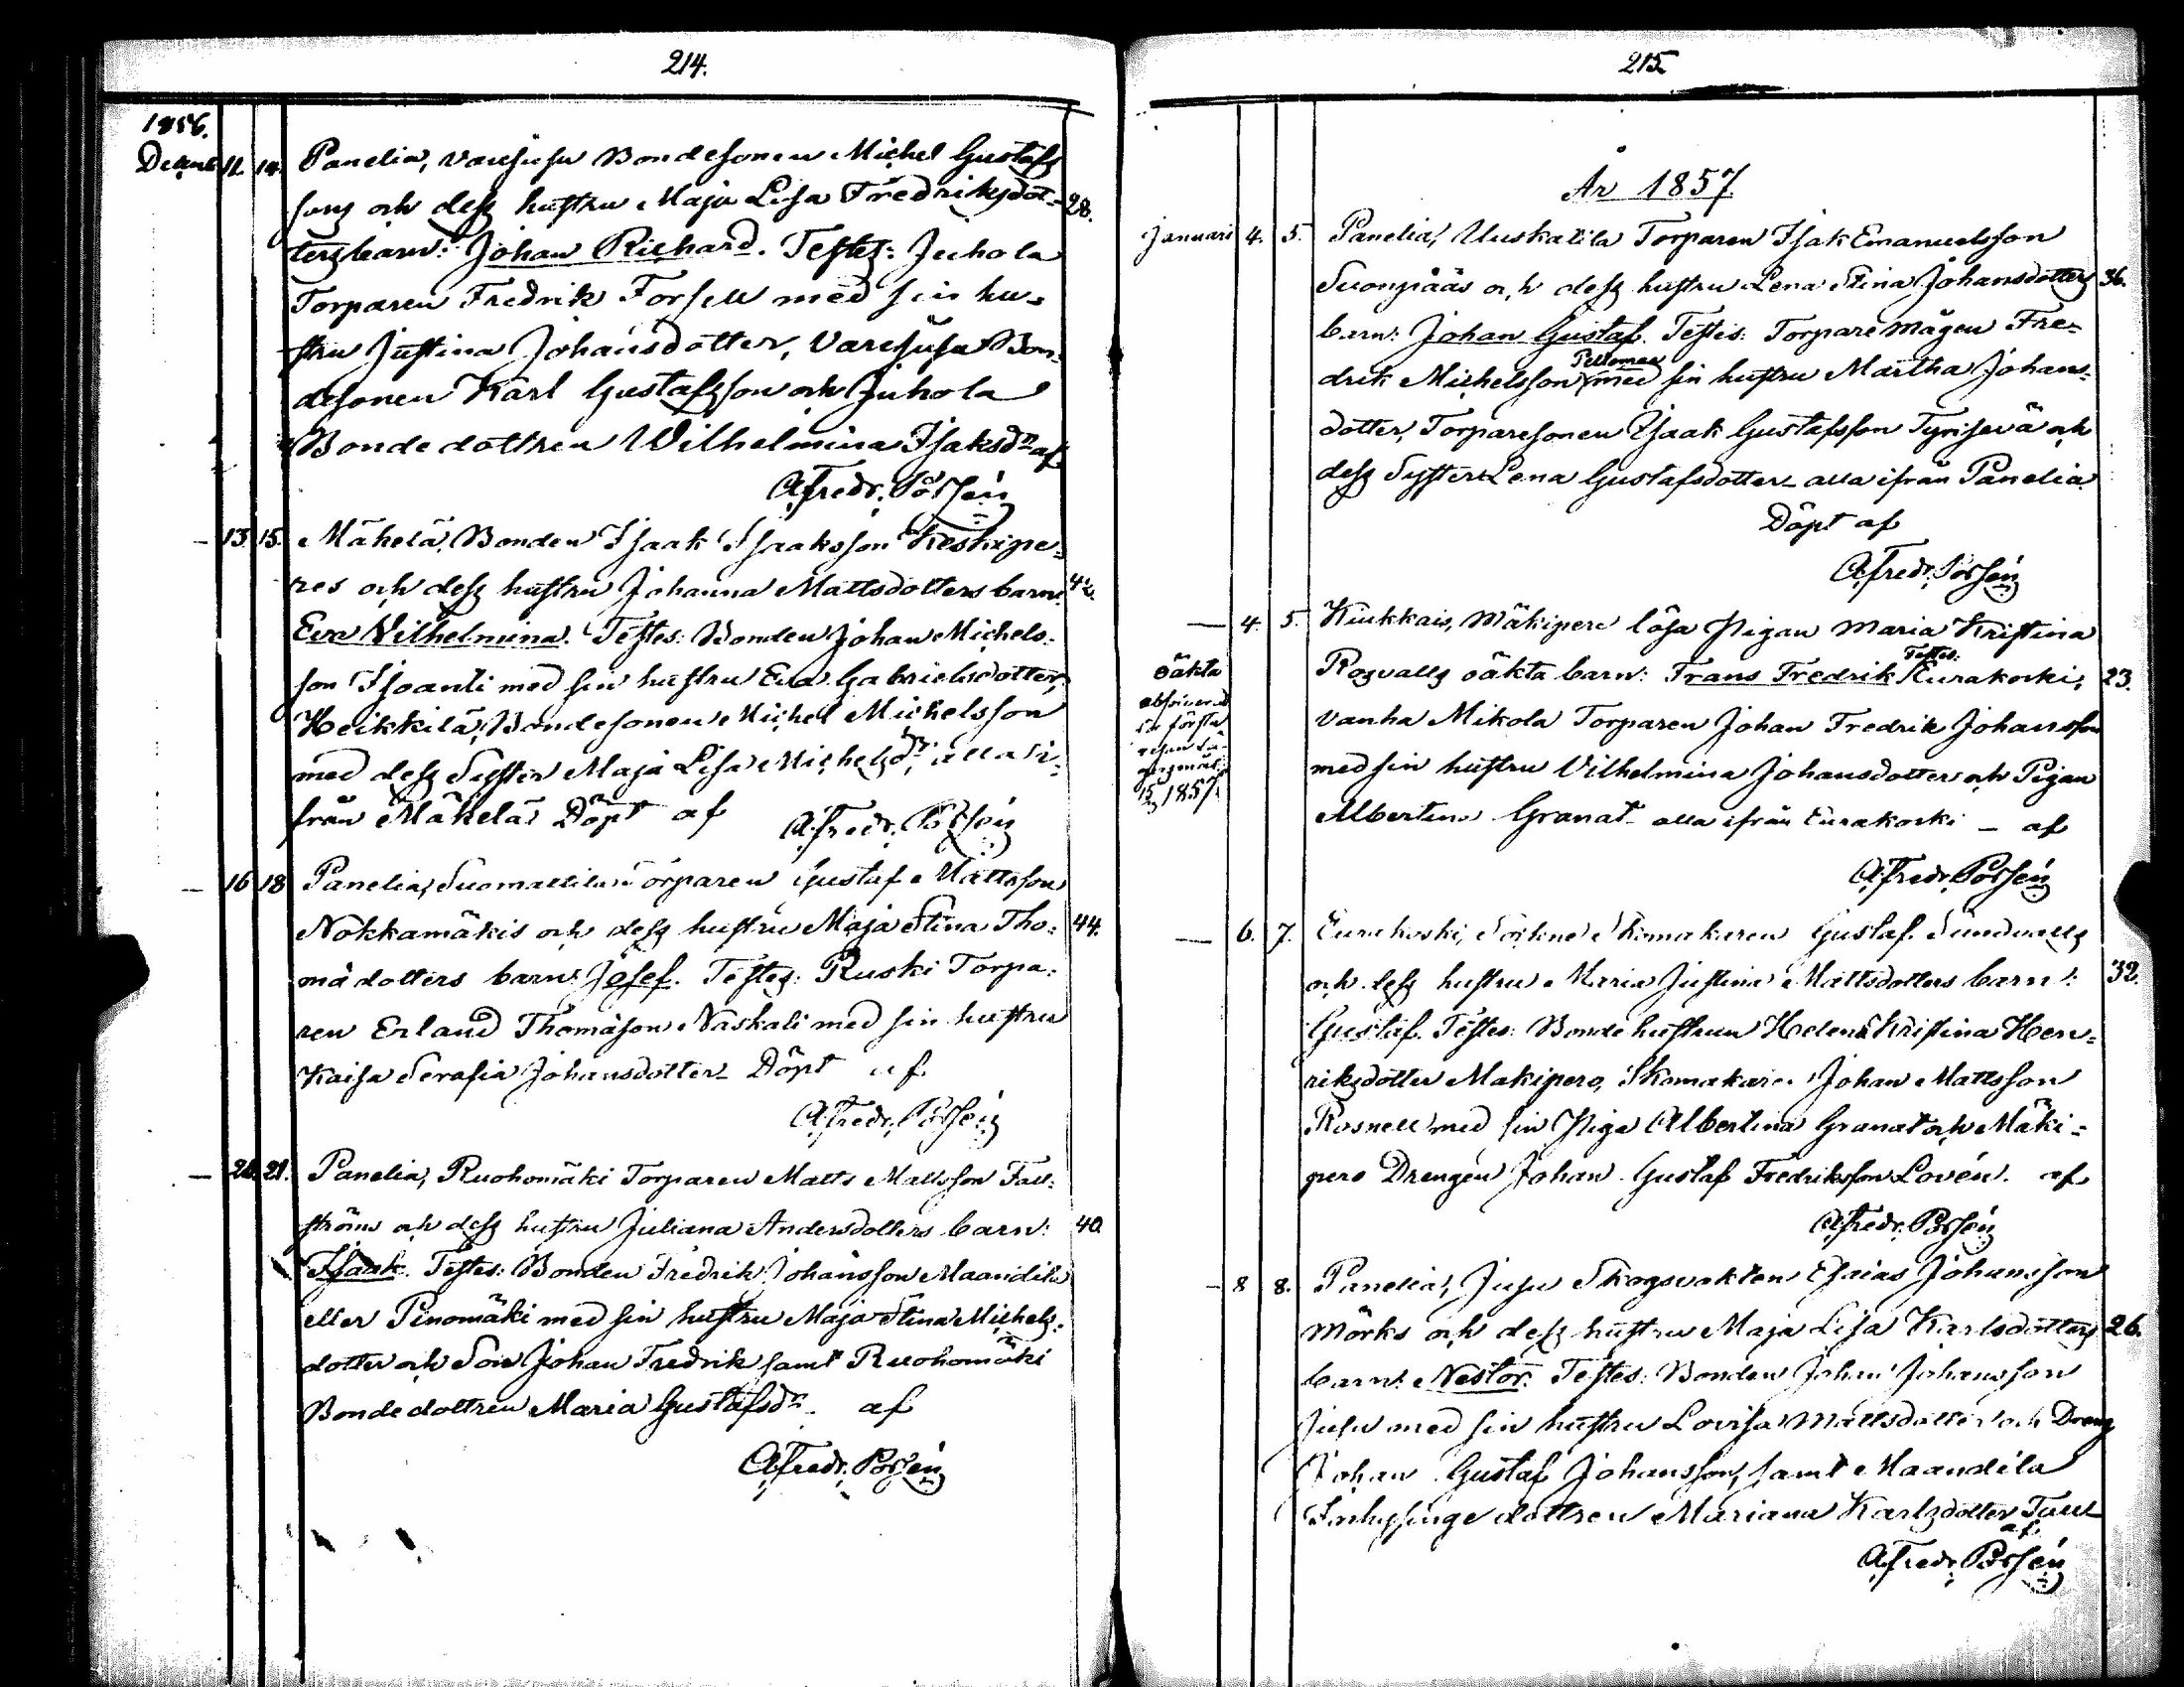 214.
1856.
Decemb 12. 14. Panelia, Varesjusu Bondesonen Michel Gustafs
sons och dess hustru Maja Lisa Fredriksdot- 28.
ters barn: Johan Richard. Testes: Juhola
Torparen Fredrik Forsell med sin hu-
stru Justina Johansdotter, Varesjusu Bon-
desonen Karl Gustafsson och Juhola
Bonde dottren Wilhelmina Isaksdr af
A. Fredr. Polsén
— 13. 15. Mäkelä, Bonden Isaak Isaaksson Keskipe-
res och dess hustru Johanna Mattsdotters barn: 42.
Eva Vilhelmina. Testes: Bonden Johan Michels-
son Isoanti med sin hustru Eva Gabrielsdotter,
Heikkilä Bondesonen Michel Michelsson
med dess Syster Maja Lisa Michelsdr alla i-
från Mäkelä Döpt af A. Fredr. Polsén
— 16 18 Panelia, Suomallila Torparen Gustaf Mattsson
Nokkamäkis och dess hustru Maja Stina Tho- 44.
mä dotters barn: Josef. Testes: Ruski Torpa-
ren Erland Thomäson Naskali med sin hustru
Kaisa Serafia Johansdotter. Döpt af
A. Fredr. Polsén
— 20. 21. Panelia, Ruohomäki Torparen Matts Mattsson Fall-
ströms och dess hustru Juliana Andersdotters barn: 40.
Isaak. Testes: Bonden Fredrik Johansson Maandila
eller Pinomäki med sin hustru Maja Stina Michels-
dotter och Son Johan Fredrik samt Ruohomäki
Bonde dottren Maria Gustafsdr. af
A. Fredr. Polsén
215
År 1857
Januari 4. 5. Panelia, Uuskalila Torparen Isak Emanuelsson
Suonpääs och dess hustru Lena Stina Johansdotters 36.
barn: Johan Gustaf. Testes: Torpare mågen Fre-
Pellomaa
drik Michelsson med sin hustru Martha Johans-
dotter, Torparesonen Isaak Gustafsson Tyrisevä och
dess Syster Lena Gustafsdotter alla ifrån Panelia
Döpt af
A. Fredr. Polsén
— 4. 5. Kiukkais, Mäkipere lösa Pigan Maria Kristina
Testes:
oäkta Rosvalls oäkta barn: Frans Fredrik Eurakoski, 23.
vanha Mikola Torparen Johan Fredrik Johansson
för första
med sin hustru Vilhelmina Johansdotter och Pigan
1857.
Albertina Granat alla ifrån Eurakoski — af
A. Fredr. Polsén
— 6. 7. Eurakoski, Sockne Skomakaren Gustaf Sundvalls
och dess hustru Maria Justina Mattsdotters barn: 32.
Gustaf. Testes: Bonde hustrun Helena Kristina Hen-
riksdotter Makipere, Skomakaren Johan Mattsson
Rosnell med sin Piga Albertina Granat och Mäki-
pere Drengen Johan Gustaf Fredriksson Lovén. af
A. Fredr. Polsén
— 8 8. Panelia, Jusu Skogsvakten Esaias Johansson
Mörks och dess hustru Maja Lisa Karlsdotters 26.
barn: Nestor. Testes: Bonden Johan Johansson
Jusu med sin hustru Lovisa Mattsdotter och Dreng
Johan Gustaf Johansson, samt Maandila
Inhysinge dottren Mariana Karlsdotter Tall
af
A. Fredr. Polsén